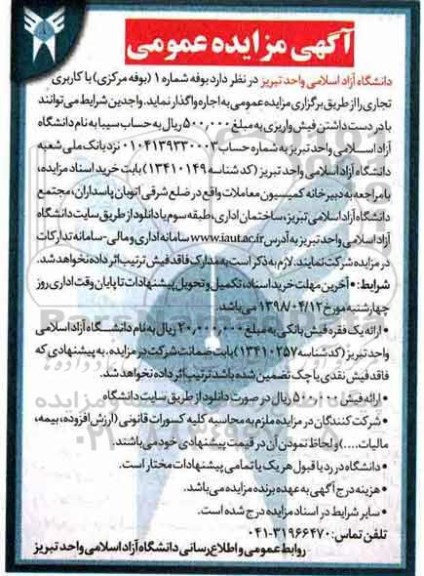 آگهی مزایده عمومی
دانشگاه آزاد اسلامی واحد تبریز در نظر دارد بوفه شماره ۱ (بوفه مرکزی) با کاربری
تجاری را از طریق برگزاری مزایده عمومی به اجاره واگذار نماید. واجدین شرایط می‌توانند
با در دست داشتن فیش واریزی به مبلغ ۵۰۰,۰۰۰ ریال به حساب سیبا به نام دانشگاه
آزاد اسلامی واحد تبریز به شماره حساب ۰۱۰۴۱۳۹۳۳۰۰۰۳ نزد بانک ملی شعبه
دانشگاه آزاد اسلامی واحد تبریز (کد شناسه ۱۳۴۱۰۱۴۹) بابت خرید اسناد مزایده،
با مراجعه به دبیرخانه کمیسیون معاملات واقع در ضلع شرقی اتوبان پاسداران، مجتمع
دانشگاه آزاد اسلامی تبریز، ساختمان اداری، طبقه سوم یا دانلود از طریق سایت دانشگاه
آزاد اسلامی واحد تبریز به آدرس www.iaut.ac.ir سامانه اداری و مالی-سامانه تدارکات
در مزایده شرکت نمایند. لازم به ذکر است به مدارک فاقد فیش ترتیب اثر داده نخواهد شد.
شرایط: • آخرین مهلت خرید اسناد، تکمیل و تحویل پیشنهادات تا پایان وقت اداری روز
چهارشنبه مورخ ۱۳۹۸/۰۴/۱۲ می‌باشد.
• ارائه یک فقره فیش بانکی به مبلغ ۲۰,۰۰۰,۰۰۰ ریال به نام دانشگاه آزاد اسلامی
واحد تبریز (کد شناسه ۱۳۴۱۰۲۵۷) بابت ضمانت شرکت در مزایده. به پیشنهادی که
فاقد فیش نقدی یا چک تضمین شده باشد ترتیب اثر داده نخواهد شد.
• ارائه فیش ۵۰۰,۰۰۰ ریال در صورت دانلود از طریق سایت دانشگاه
• شرکت کنندگان در مزایده ملزم به محاسبه کلیه کسورات قانونی (ارزش افزوده، بیمه،
مالیات....) و لحاظ نمودن آن در قیمت پیشنهادی خود می‌باشند.
• دانشگاه در رد یا قبول هر یک یا تمامی پیشنهادات مختار است.
• هزینه درج آگهی به عهده برنده مزایده می‌باشد.
• سایر شرایط در اسناد مزایده درج شده است.
تلفن تماس: ۳۱۹۶۶۴۷۰-۰۴۱
روابط عمومی و اطلاع رسانی دانشگاه آزاد اسلامی واحد تبریز